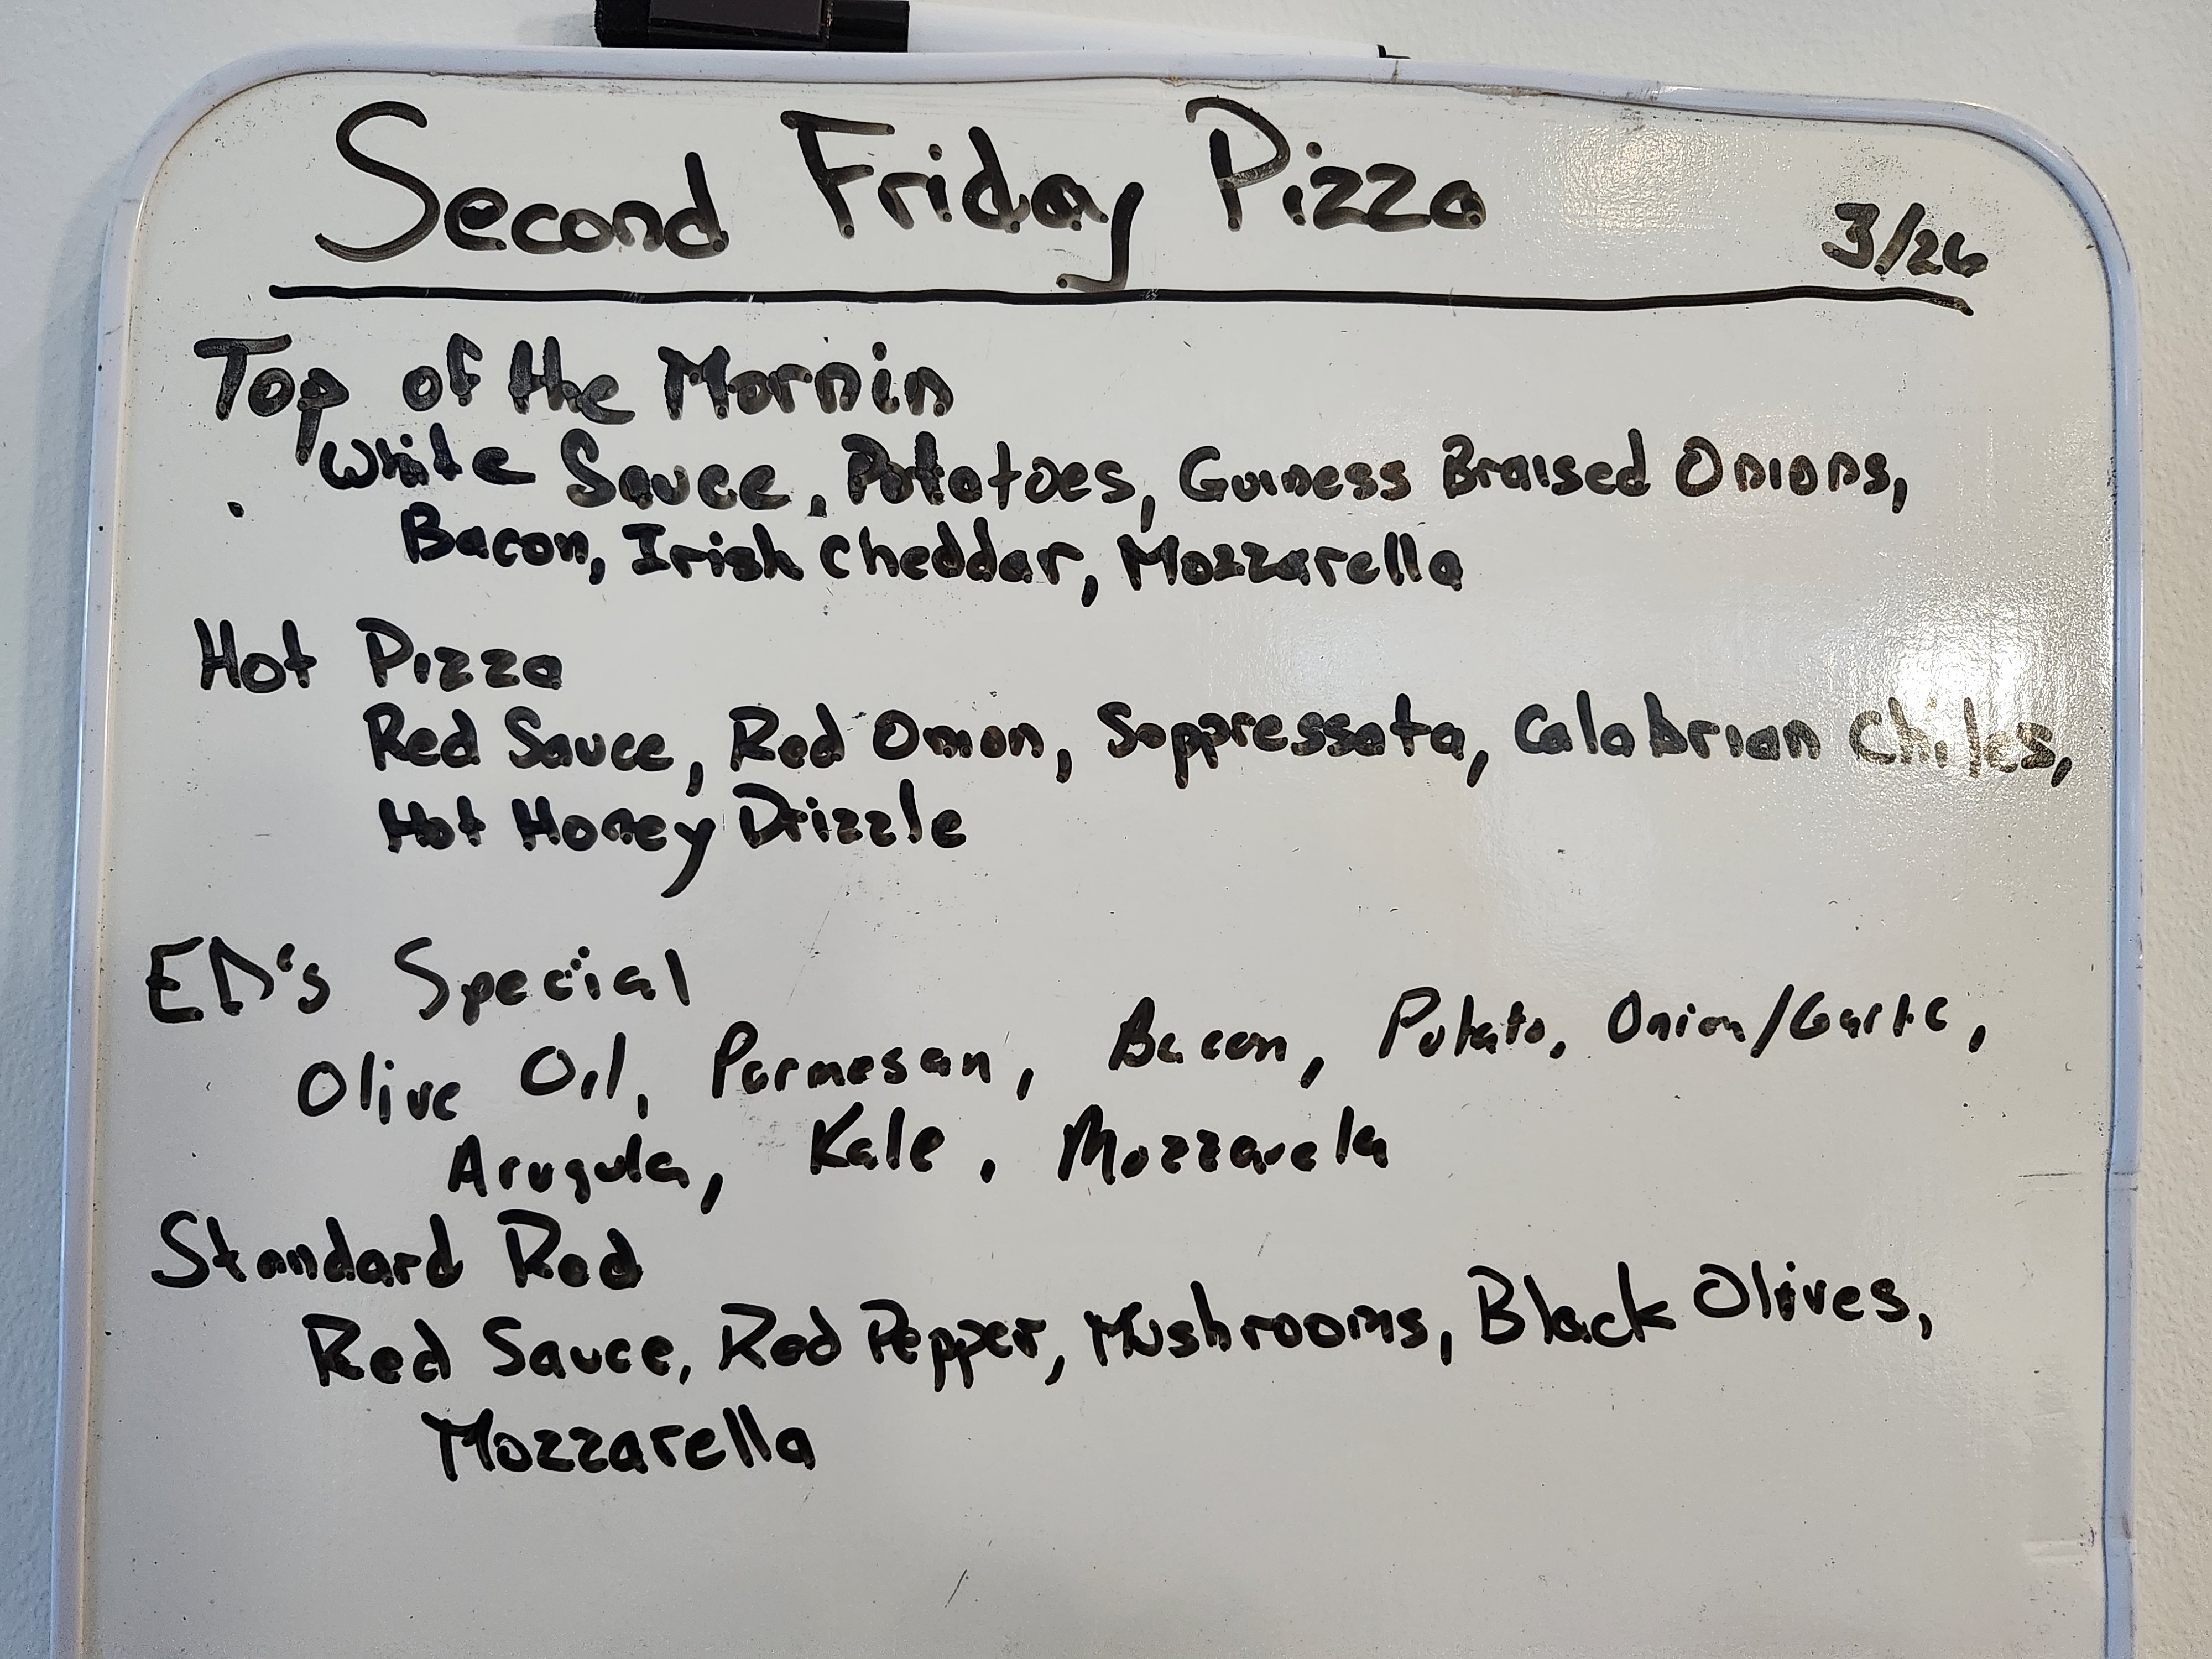 Second Friday Pizza 3/26
Top of the Mornin
White Sauce, Potatoes, Guiness Braised Onions,
Bacon, Irish Cheddar, Mozzarella
Hot Pizza
Red Sauce, Red Onion, Soppressata, Calabrian Chiles,
Hot Honey Drizzle
ED's Special
Olive Oil, Parmesan, Bacon, Potato, Onion/Garlic,
Arugula, Kale, Mozzarela
Standard Red
Red Sauce, Red Pepper, Mushrooms, Black Olives,
Mozzarella